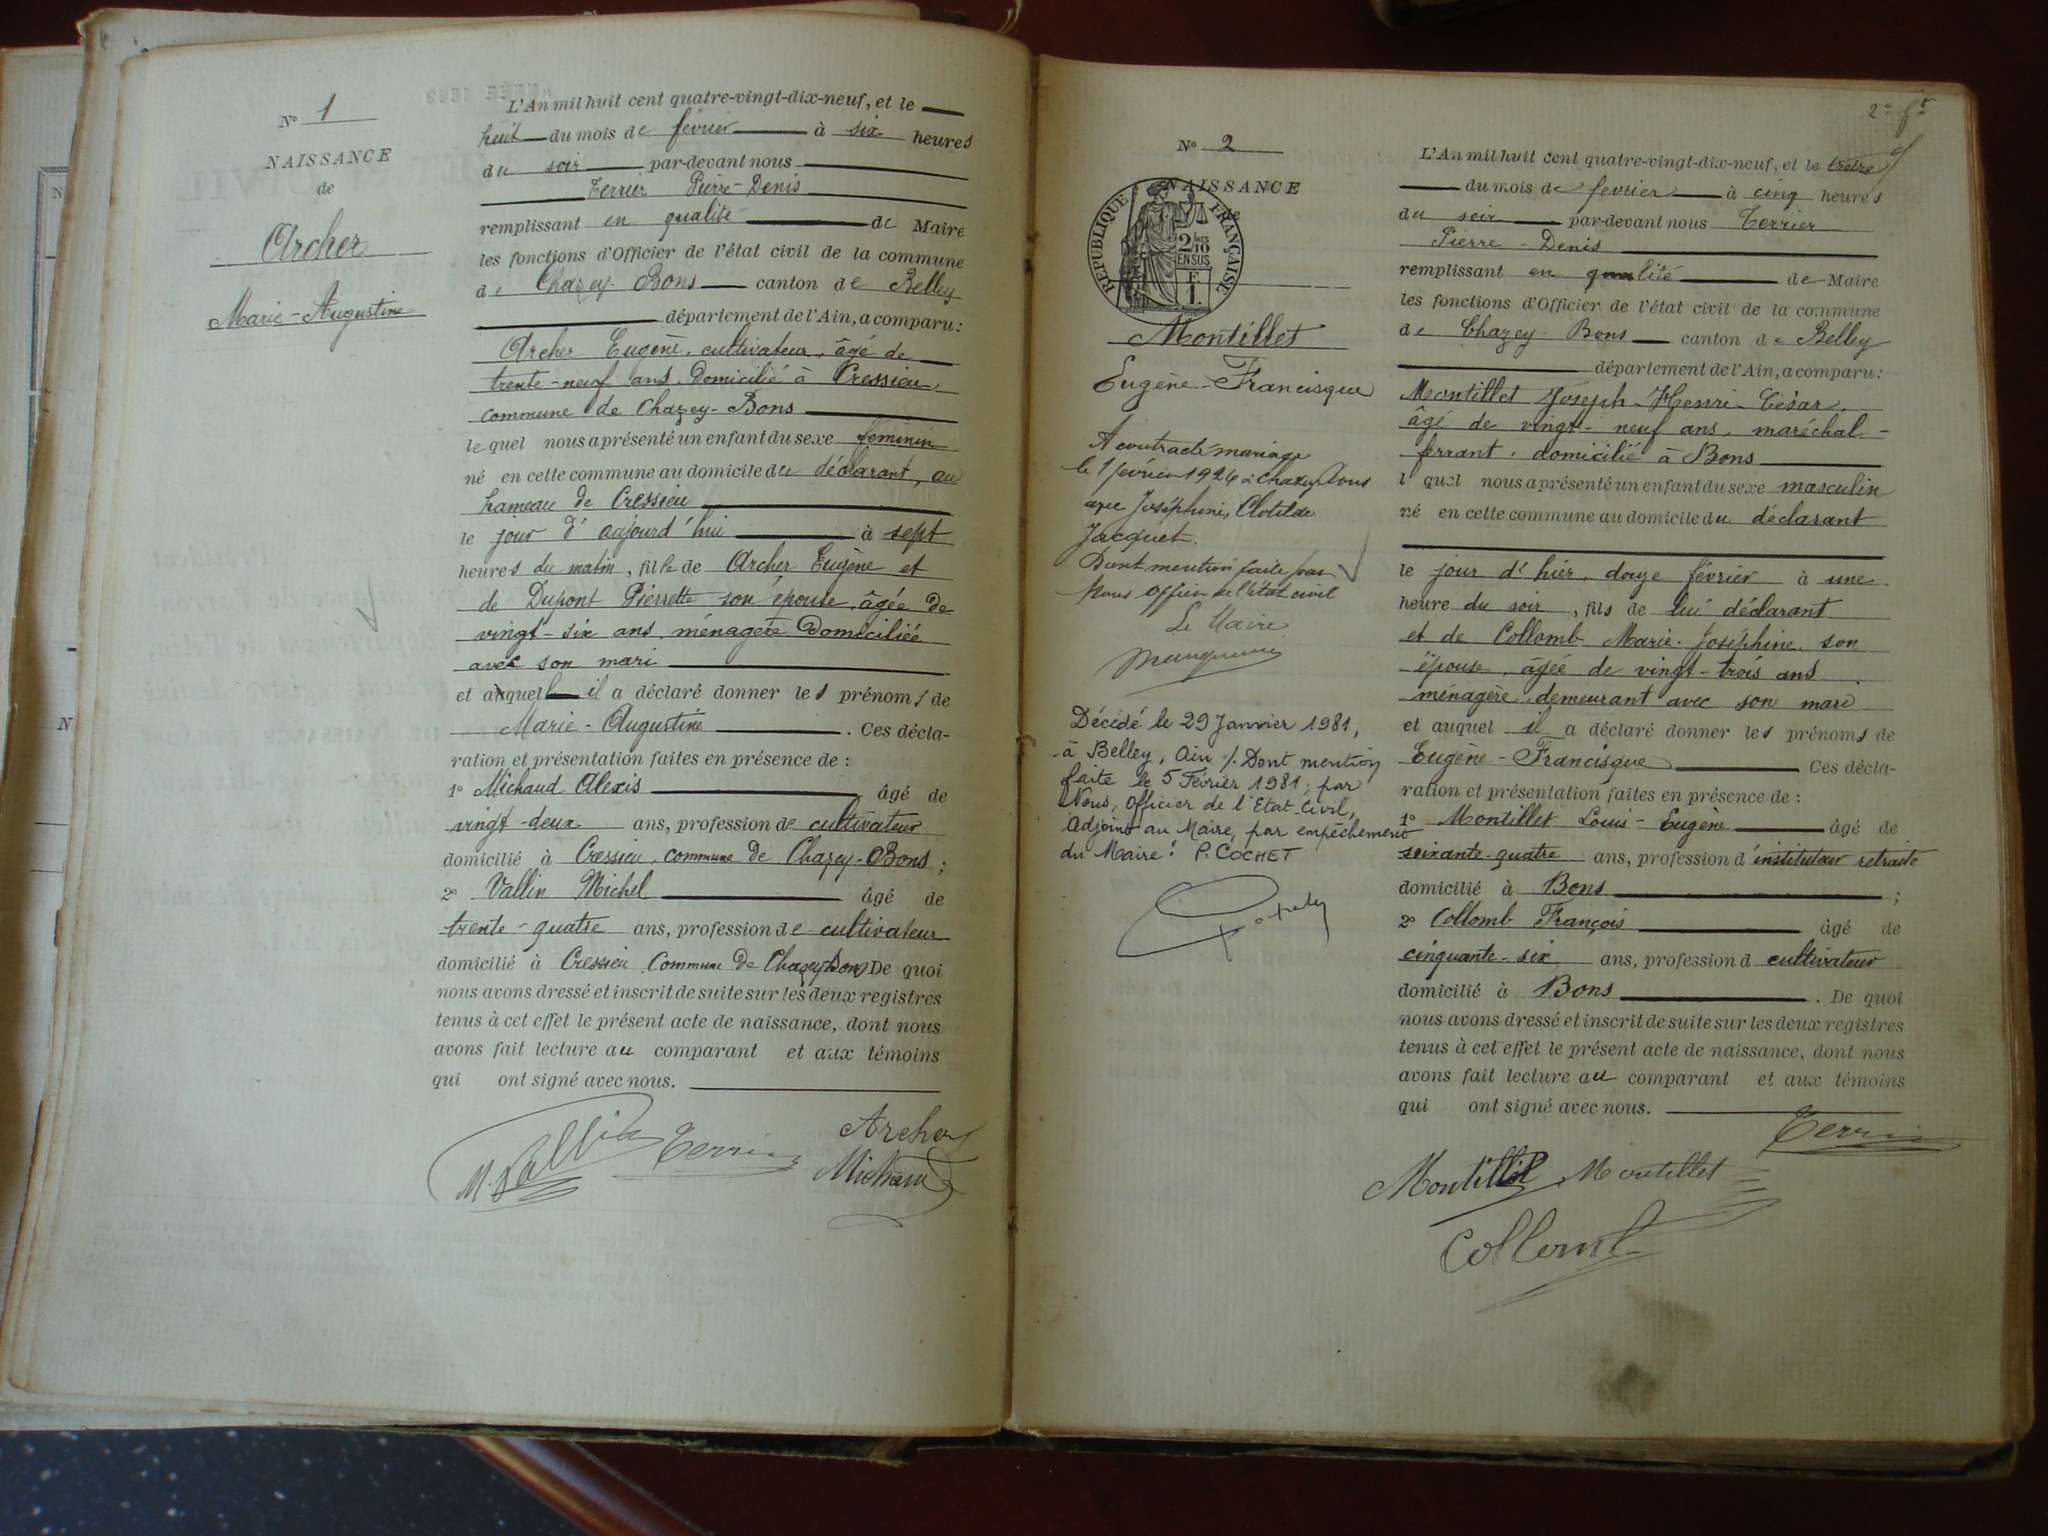 N° 1
NAISSANCE
de
Archer
Marie-Augustine
L'An mil huit cent quatre-vingt-dix-neuf, et le
huit du mois de février à six heures
du soir par-devant nous
Terrier Pierre-Denis
remplissant en qualité de Maire
les fonctions d'Officier de l'état civil de la commune
de Chazey-Bons canton de Belley
département de l'Ain, a comparu:
Archer Eugène, cultivateur, âgé de
trente-neuf ans, domicilié à Cressieu,
commune de Chazey-Bons
lequel nous a présenté un enfant du sexe féminin
né en cette commune au domicile du déclarant, au
hameau de Cressieu
le jour d'aujourd'hui à sept
heures du matin, fille de Archer Eugène et
de Dupont Pierrette son épouse, âgée de
vingt-six ans, ménagère Domiciliée
avec son mari
et auquel il a déclaré donner les prénoms de
Marie-Augustine. Ces décla-
ration et présentation faites en présence de :
1° Michaud Alexis âgé de
vingt-deux ans, profession de cultivateur
domicilié à Cressieu, commune de Chazey-Bons ;
2° Vallin Michel âgé de
trente-quatre ans, profession de cultivateur
domicilié à Cressieu Commune de Chazey Bons De quoi
nous avons dressé et inscrit de suite sur les deux registres
tenus à cet effet le présent acte de naissance, dont nous
avons fait lecture au comparant et aux témoins
qui ont signé avec nous.
M. Vallin Terrier Archer
Michaud
2e ft
N° 2
NAISSANCE
RÉPUBLIQUE FRANÇAISE
2/10 EN SUS
F. 1.
Montillet
Eugène-Francisque
A contracté mariage
le 1 février 1926 à Chazey Bons
avec Joséphine, Clotilde
Jacquet.
Dont mention faite par
Nous officier de l'état civil
Le Maire
Décédé le 29 Janvier 1981,
à Belley, Ain ./. Dont mention
faite le 5 Février 1981, par
Nous, Officier de l'Etat-Civil,
Adjoint au Maire, par empêchement
du Maire : P. COCHET
L'An mil huit cent quatre-vingt-dix-neuf, et le treize
du mois de fevrier à cinq heures
du soir par-devant nous Terrier
Pierre-Denis
remplissant en qualité de Maire
les fonctions d'Officier de l'état civil de la commune
de Chazey-Bons canton de Belley
département de l'Ain, a comparu:
Montillet Joseph-Henri-César,
âgé de vingt-neuf ans, maréchal-
ferrant, domicilié à Bons
lequel nous a présenté un enfant du sexe masculin
né en cette commune au domicile du déclarant
le jour d'hier, douze février à une
heure du soir, fils de lui déclarant
et de Collomb Marie-Joséphine, son
épouse, âgée de vingt-trois ans
ménagère, demeurant avec son mari
et auquel il a déclaré donner les prénoms de
Eugène-Francisque Ces décla-
ration et présentation faites en présence de :
1° Montillet Louis-Eugène âgé de
soixante-quatre ans, profession d'instituteur retraité
domicilié à Bons ;
2° Collomb François âgé de
cinquante-six ans, profession d cultivateur
domicilié à Bons. De quoi
nous avons dressé et inscrit de suite sur les deux registres
tenus à cet effet le présent acte de naissance, dont nous
avons fait lecture au comparant et aux témoins
qui ont signé avec nous.
Terrier
Montillet Montillet
Collomb